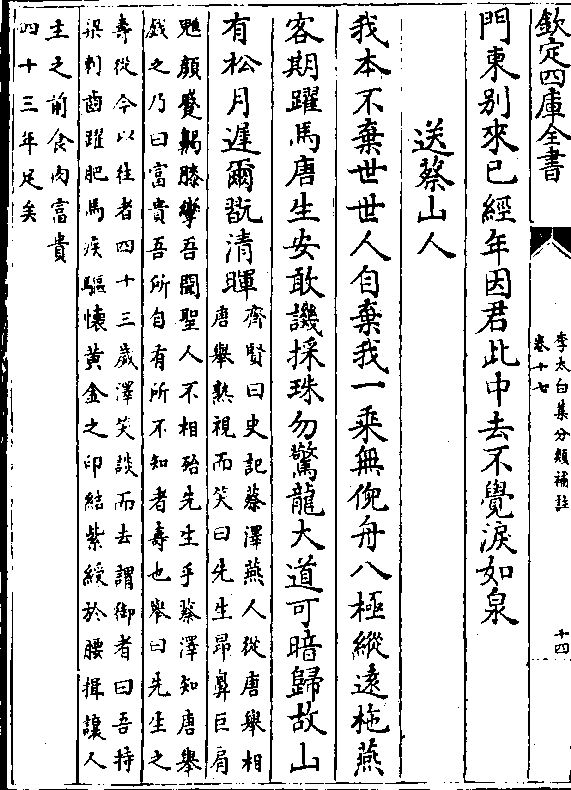 欽定四庫全書
李太白集分類補註
卷十七
十四
門東别來已經年因君此中去不覺淚如泉
送蔡山人
我本不棄世世人自棄我一乘無倪舟八極縱遠柂燕
客期躍馬唐生安敢譏採珠勿驚龍大道可暗歸故山
有松月遲爾翫清暉
齊賢曰史記蔡澤燕人從唐舉相
唐舉熟視而笑曰先生昂鼻巨肩
魋顔蹙齃膝攣吾聞聖人不相殆先生乎蔡澤知唐舉
戲之乃曰富貴吾所自有所不知者壽也舉曰先生之
壽從今以往者四十三歲澤笑談而去謂御者曰吾持
梁刺齒躍肥馬疾驅懷黃金之印結紫綬於腰揖讓人
主之前食肉富貴
四十三年足矣